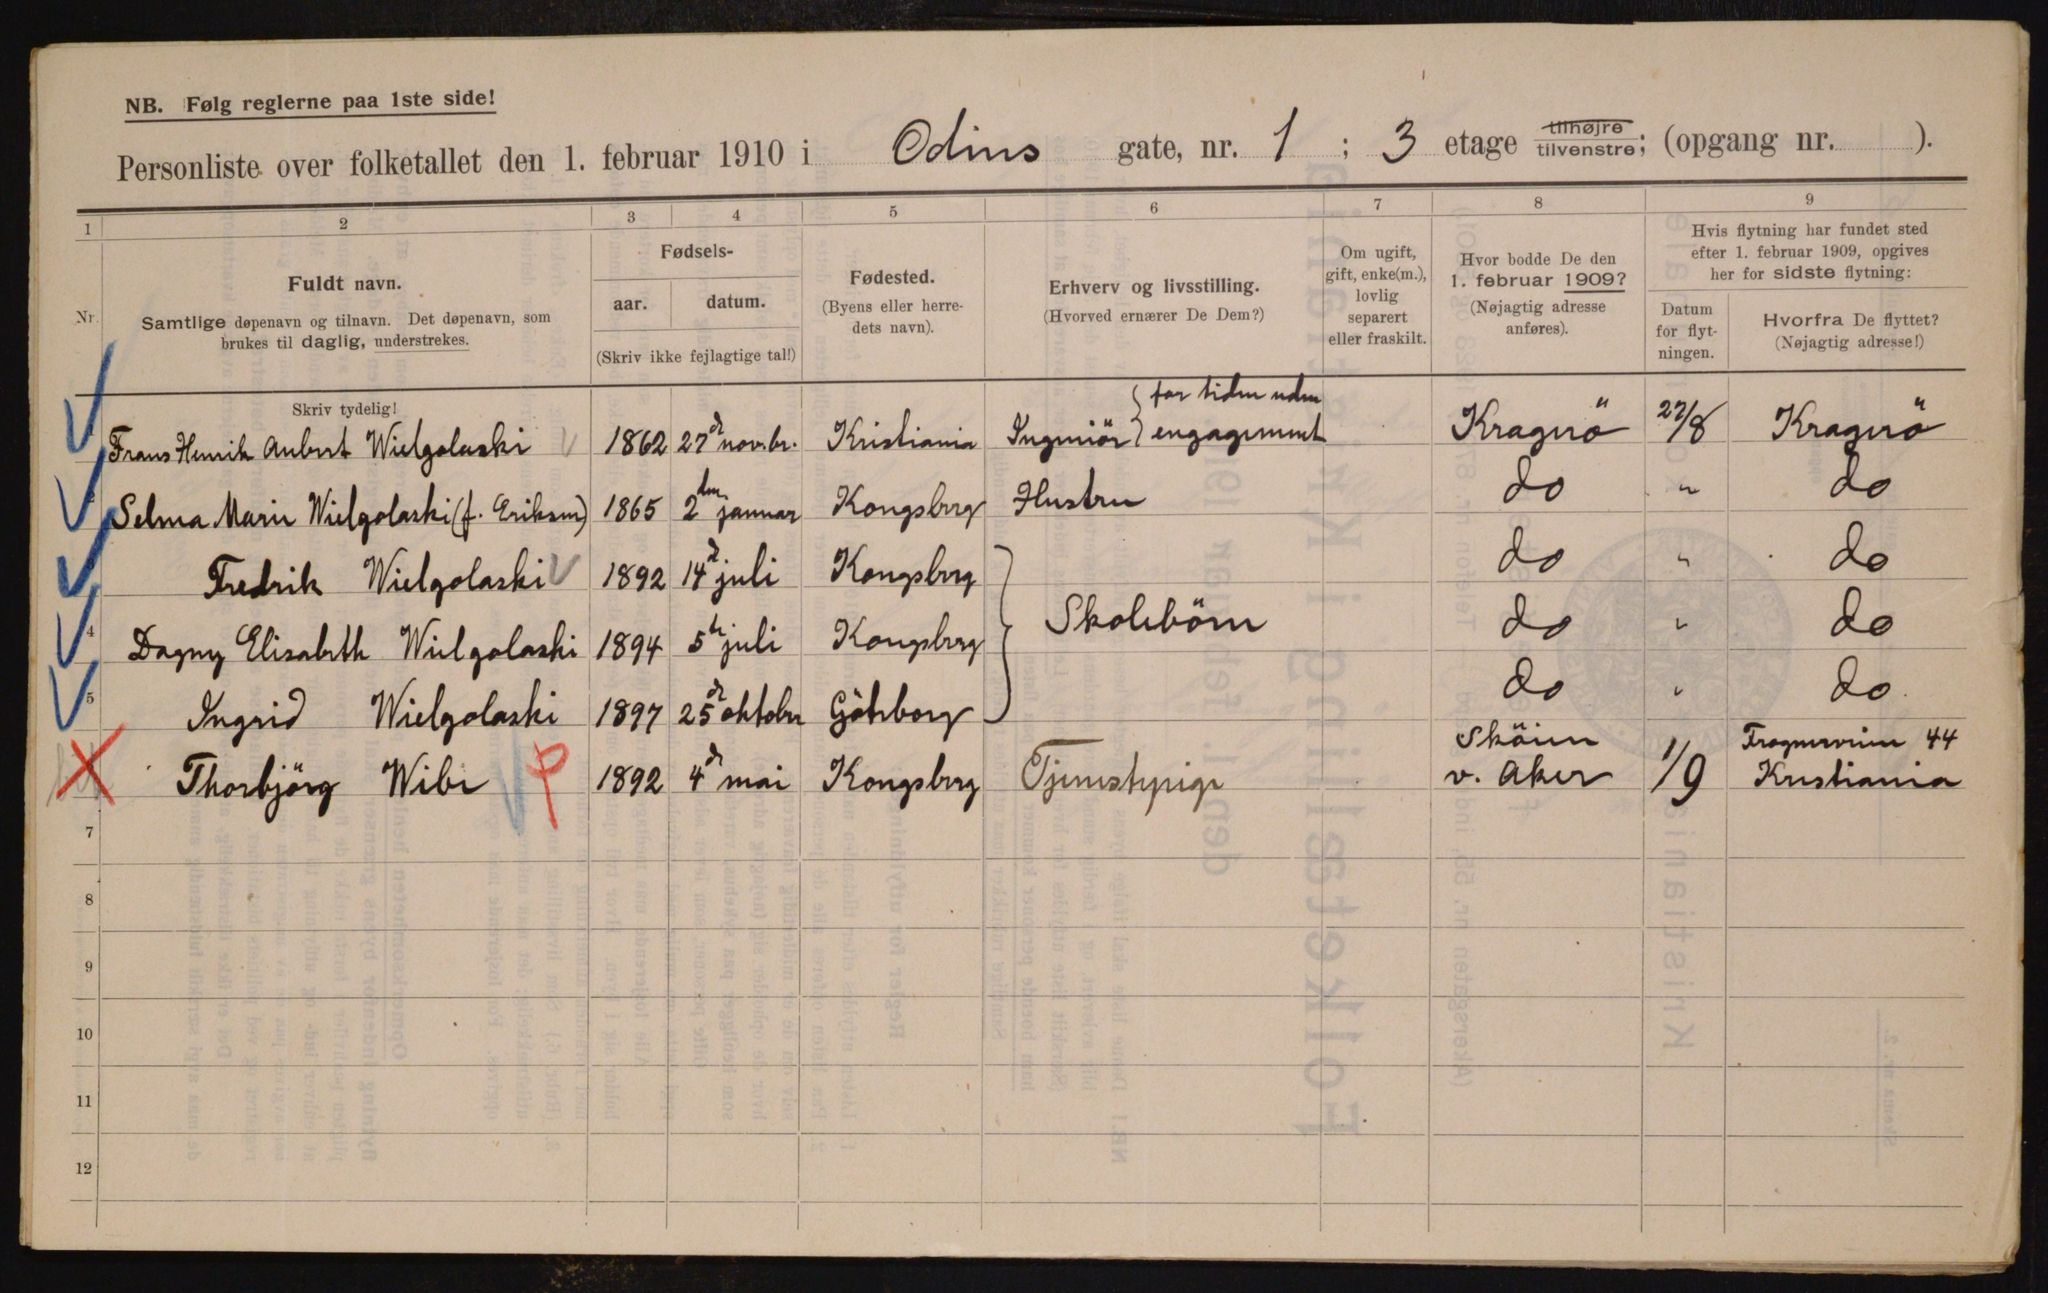 NB. Følg reglerne paa 1ste side!
Personliste over folketallet den 1. februar 1910 i Odins gate, nr. 1 ; 3 etage tilhøjre tilvenstre; (opgang nr. ).
1 2 3 4 5 6 7 8 9
Nr.
Fuldt navn.
Samtlige døpenavn og tilnavn. Det døpenavn, som
brukes til daglig, understrekes.
Fødsels-
aar. datum.
(Skriv ikke fejlagtige tal!)
Fødested.
(Byens eller herre-
dets navn).
Erhverv og livsstilling.
(Hvorved ernærer De Dem?)
Om ugift,
gift, enke(m.),
lovlig
separert
eller fraskilt.
Hvor bodde De den
1. februar 1909?
(Nøjagtig adresse
anføres).
Hvis flytning har fundet sted
efter 1. februar 1909, opgives
her for sidste flytning:
Datum
for flyt-
ningen.
Hvorfra De flyttet?
(Nøjagtig adresse!)
Skriv tydelig!
Frans Henrik Aubert Wielgolaski 1862 27d nov.br. Kristiania Ingeniör { for tiden uden engagement Kragerö 27/8 Kragerö
Selma Marie Wielgolaski (f. Eriksen) 1865 2den januar Kongsberg Hustru do " do
Fredrik Wielgolaski 1892 14d juli Kongsberg do " do
4 Dagny Elisabeth Wielgolaski 1894 5te juli Kongsberg Skolebörn do " do
5 Ingrid Wielgolaski 1897 25d oktober Göteborg do " do
Thorbjörg Wibe 1892 4d mai Kongsberg Tjenestepige Sköien v. Aker 1/9 Frognerveien 44 Kristiania
7
8
9
10
11
12